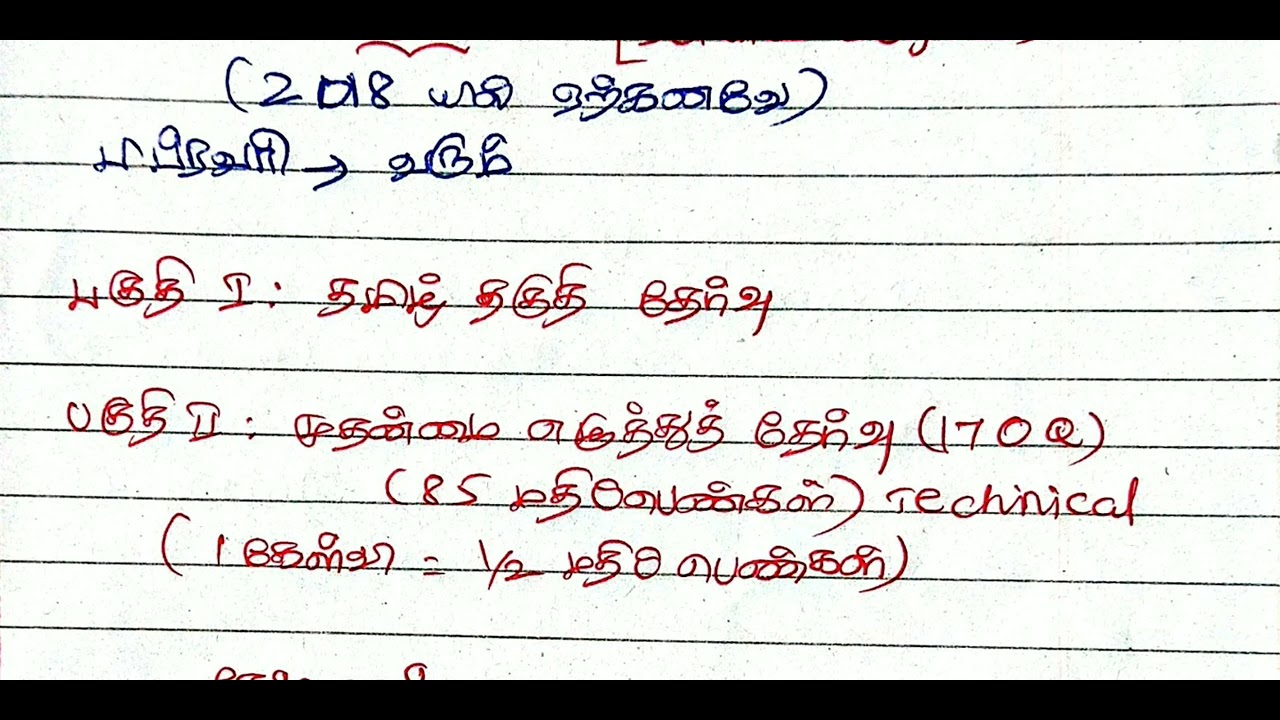 (2018 யில் ஏற்கனவே)
→ வரும்
பகுதி I : தமிழ் தகுதி தேர்வு
பகுதி II : முதன்மை எழுத்துத் தேர்வு (170 Q)
(85 மதிப்பெண்கள்) Techinical
(1 கேள்வி = 1/2 மதிப்பெண்கள்)